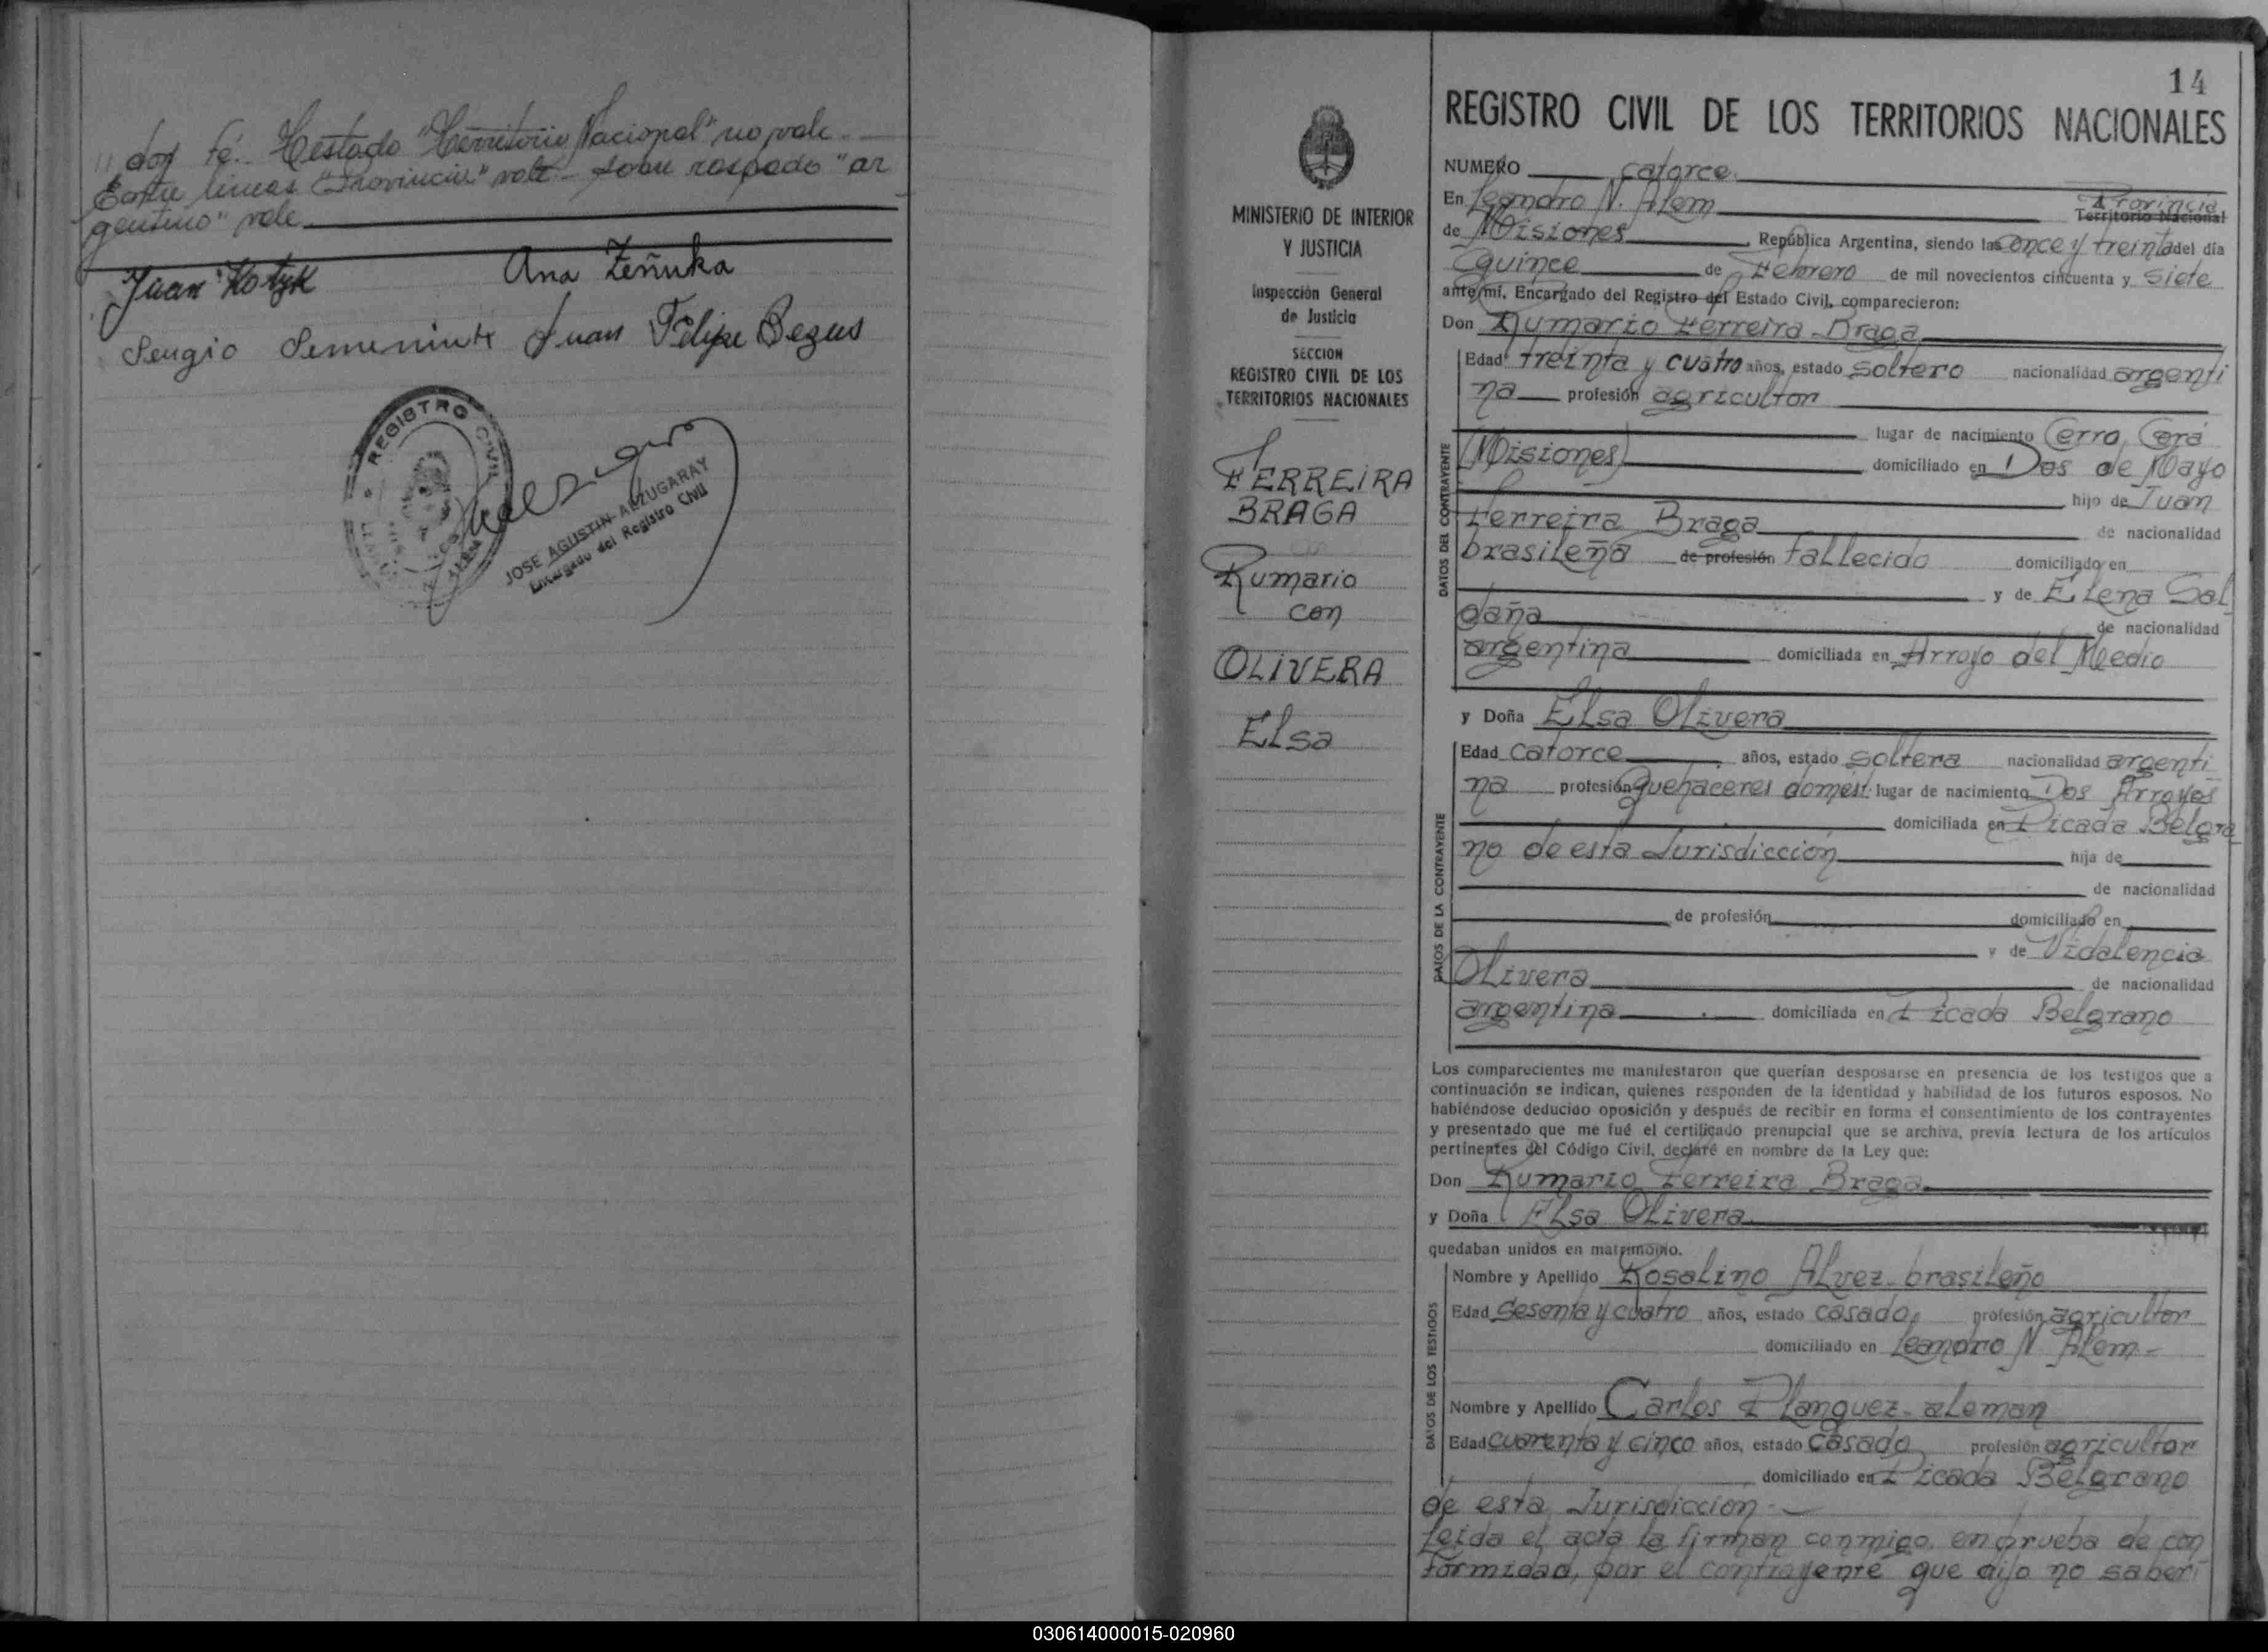 doy fé. Testado "Territorio Nacional" no vale.
Entre lineas "Provincia" vale - sobre raspado "ar
gentino" vale
Juan Kotyk
Ana Zeñuka
Sergio
Juan Felipe Bezus
REGISTRO CIVIL
JOSE AGUSTIN ALZUGARAY
Encargado del Registro Civil
MINISTERIO DE INTERIOR
Y JUSTICIA
Inspección General
de Justicia
SECCION
REGISTRO CIVIL DE LOS
TERRITORIOS NACIONALES
FERREIRA
BRAGA
Rumario
con
OLIVERA
Elsa
14
REGISTRO CIVIL DE LOS TERRITORIOS NACIONALES
NUMERO catorce
Provincia
En Leandro N. Alem Territorio Nacional
de Misiones, República Argentina, siendo las once y treinta del día
quince de Febrero de mil novecientos cincuenta y siete
ante mí, Encargado del Registro del Estado Civil, comparecieron:
Don Rumario Ferreira Braga
DATOS DEL CONTRAYENTE
Edad treinta y cuatro años, estado soltero nacionalidad argenti
na profesión agricultor
lugar de nacimiento Cerro Corá
(Misiones) domiciliado en Dos de Mayo
hijo de Juan
Ferreira Braga de nacionalidad
brasileña de profesión fallecido domiciliado en
y de Elena Sal
daña de nacionalidad
argentina domiciliada en Arroyo del Medio
y Doña Elsa Olivera
DATOS DE LA CONTRAYENTE
Edad catorce años, estado soltera nacionalidad argenti
na profesión quehaceres domést. lugar de nacimiento Dos Arroyos
domiciliada en Picada Belgra
no de esta Jurisdicción hija de
de nacionalidad
de profesión domiciliado en
y de Vidalencia
Olivera de nacionalidad
argentina domiciliada en Picada Belgrano
Los comparecientes me manifestaron que querían desposarse en presencia de los testigos que a
continuación se indican, quienes responden de la identidad y habilidad de los futuros esposos. No
habiéndose deducido oposición y después de recibir en forma el consentimiento de los contrayentes
y presentado que me fué el certificado prenupcial que se archiva, previa lectura de los artículos
pertinentes del Código Civil, declaré en nombre de la Ley que:
Don Rumario Ferreira Braga
y Doña Elsa Olivera
quedaban unidos en matrimonio.
DATOS DE LOS TESTIGOS
Nombre y Apellido Rosalino Alvez - brasileño
Edad sesenta y cuatro años, estado casado profesión agricultor
domiciliado en Leandro N Alem -
Nombre y Apellido Carlos Planguez - aleman
Edad cuarenta y cinco años, estado casado profesión agricultor
domiciliado en Picada Belgrano
de esta Jurisdicción -
Leida el acta la firman conmigo, en prueba de con
formidad, por el contrayente que dijo no saber
030614000015-020960